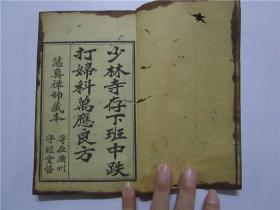 少林寺存下班中跌
打婦科萬應良方
慧真禪師藏本
寄在廣州
守經堂舊